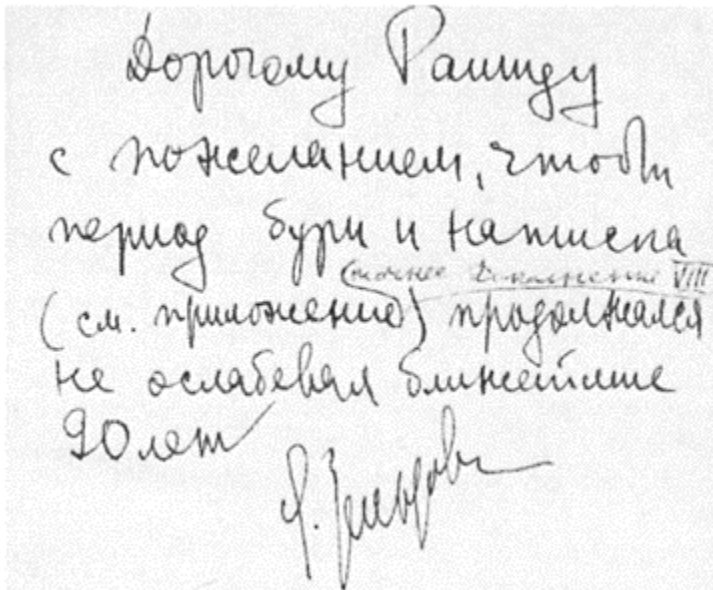 Дорогому Рашиду
с пожеланием, чтобы
период бури и натиска
(точнее Дополнение VIII
(см. приложение) продолжался
не ослабевая ближайшие
90 лет
Я. Зельдович